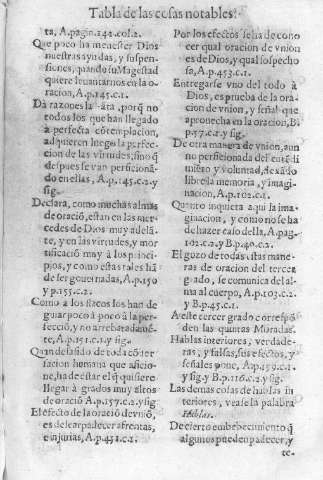 Tabla de las cosas notables.
ta, A.pagin.142.col.2.
Que poco ha menester Dios
nuestras ayudas, y suspen-
siones, quando su Magestad
quiere leuantarnos en la o-
racion, A.p.145.c.1.
Da razones la santa, porq̃ no
todos los que han llegado
à perfecta cõtemplacion,
adquieren luego la perfec-
cion de las virtudes, sino q̃
despues se van perficionã-
do en ellas, A.p.145.c.2.y
sig.
Declara, como muchas almas
de oraciõ, estan en las mer-
cedes de Dios muy adelã-
te, y en las virtudes, y mor
tificaciõ muy à los princi-
pios, y como estas tales hã
de ser gouernadas, A.p.150
y p.155.c.2.
Como a los flacos los han de
guiar poco à poco à la per-
fecciõ, y no arrebatadamẽ-
te, A.p.151.c.1.y sig.
Quan desasido de toda cõuer
sacion humana que aficio-
ne, ha de estar el q̃ quisiere
llegar à grados muy altos
de oracion A.p.157.c.2.y sig.
El efecto de la oraciõ de vniõ,
es desear padecer afrentas,
e injurias, A.p.451.c.1.
Por los efectos se ha de cono
cer qual oracion de vnion
es de Dios, y qual sospecho
sa, A.p.453.c.1.
Entregarse vno del todo à
Dios, es prueba de la ora-
cion de vnion, y señal que
aprouecha en la oracion, B.
p.57.c.1.y sig.
De otra manera de vnion, aun
no perficionada del entẽdi
miẽto y voluntad, dexãdo
libre la memoria, y imagi-
nacion, A.p.102.c.1.
Quanto inquieta aqui la ima
ginacion, y como no se ha
de hazer caso della, A.pag.
102.c.2.y B.p.40.c.2.
El gozo de todas estas mane-
ras de oracion del tercer
grado, se comunica del al-
ma al cuerpo, A.p.103.c.2.
y B.p.45.c.1.
A este tercer grado correspõ
den las quintas Moradas.
Hablas interiores, verdade-
ras, y falsas, sus efectos, y
señales pone, A.p.159.c.1.
y sig. y B.p.116.c.2.y sig.
Las demas cosas de hablas in
teriores, vease la palabra
Hablas.
De cierto embebecimiento q̃
algunos pueden padecer, y